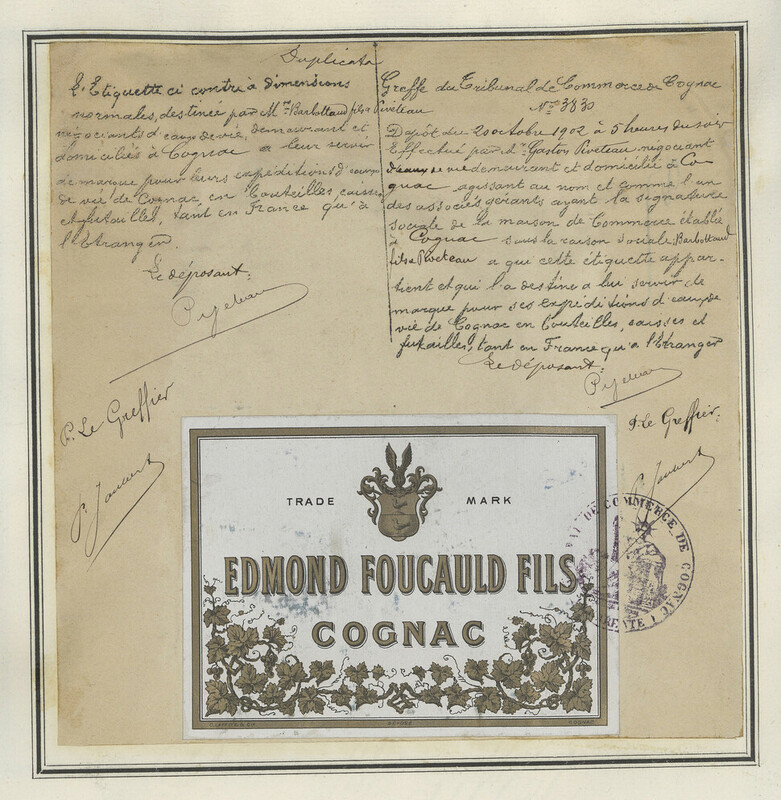 Duplicata
L'Etiquette ci contre à dimensions
normales, destinée par Mrs Barbottaud fils & Piveteau
négociants d'eaux de vie, demeurant et
domiciliés à Cognac a leur servir
de marque pour leurs expéditions d'eaux
de vie de Cognac, en bouteilles, caisses
et futailles, tant en France qu'à
l'Etranger.
Le déposant:
Piveteau
P. Le Greffier
Greffe du Tribunal de Commerce de Cognac
No 3830
Dépôt du 20 octobre 1902 à 5 heures du soir
Effectué par Mr Gaston Piveteau négociant
d'eaux de vie demeurant et domicilié à Co
gnac, agissant au nom et comme l'un
des associés gérants ayant la signature
sociale de la maison de Commerce établie
à Cognac sous la raison sociale, Barbottaud
fils & Piveteau a qui cette étiquette appar-
tient et qui l'a destine a lui servir de
marque pour ses expéditions d'eaux de
vie de Cognac en bouteilles, caisses et
futailles, tant en France qu'a l'Etranger
Le déposant:
Piveteau
P. Le Greffier.
TRADE MARK
EDMOND FOUCAULD FILS
COGNAC
DE COMMERCE DE COGNAC